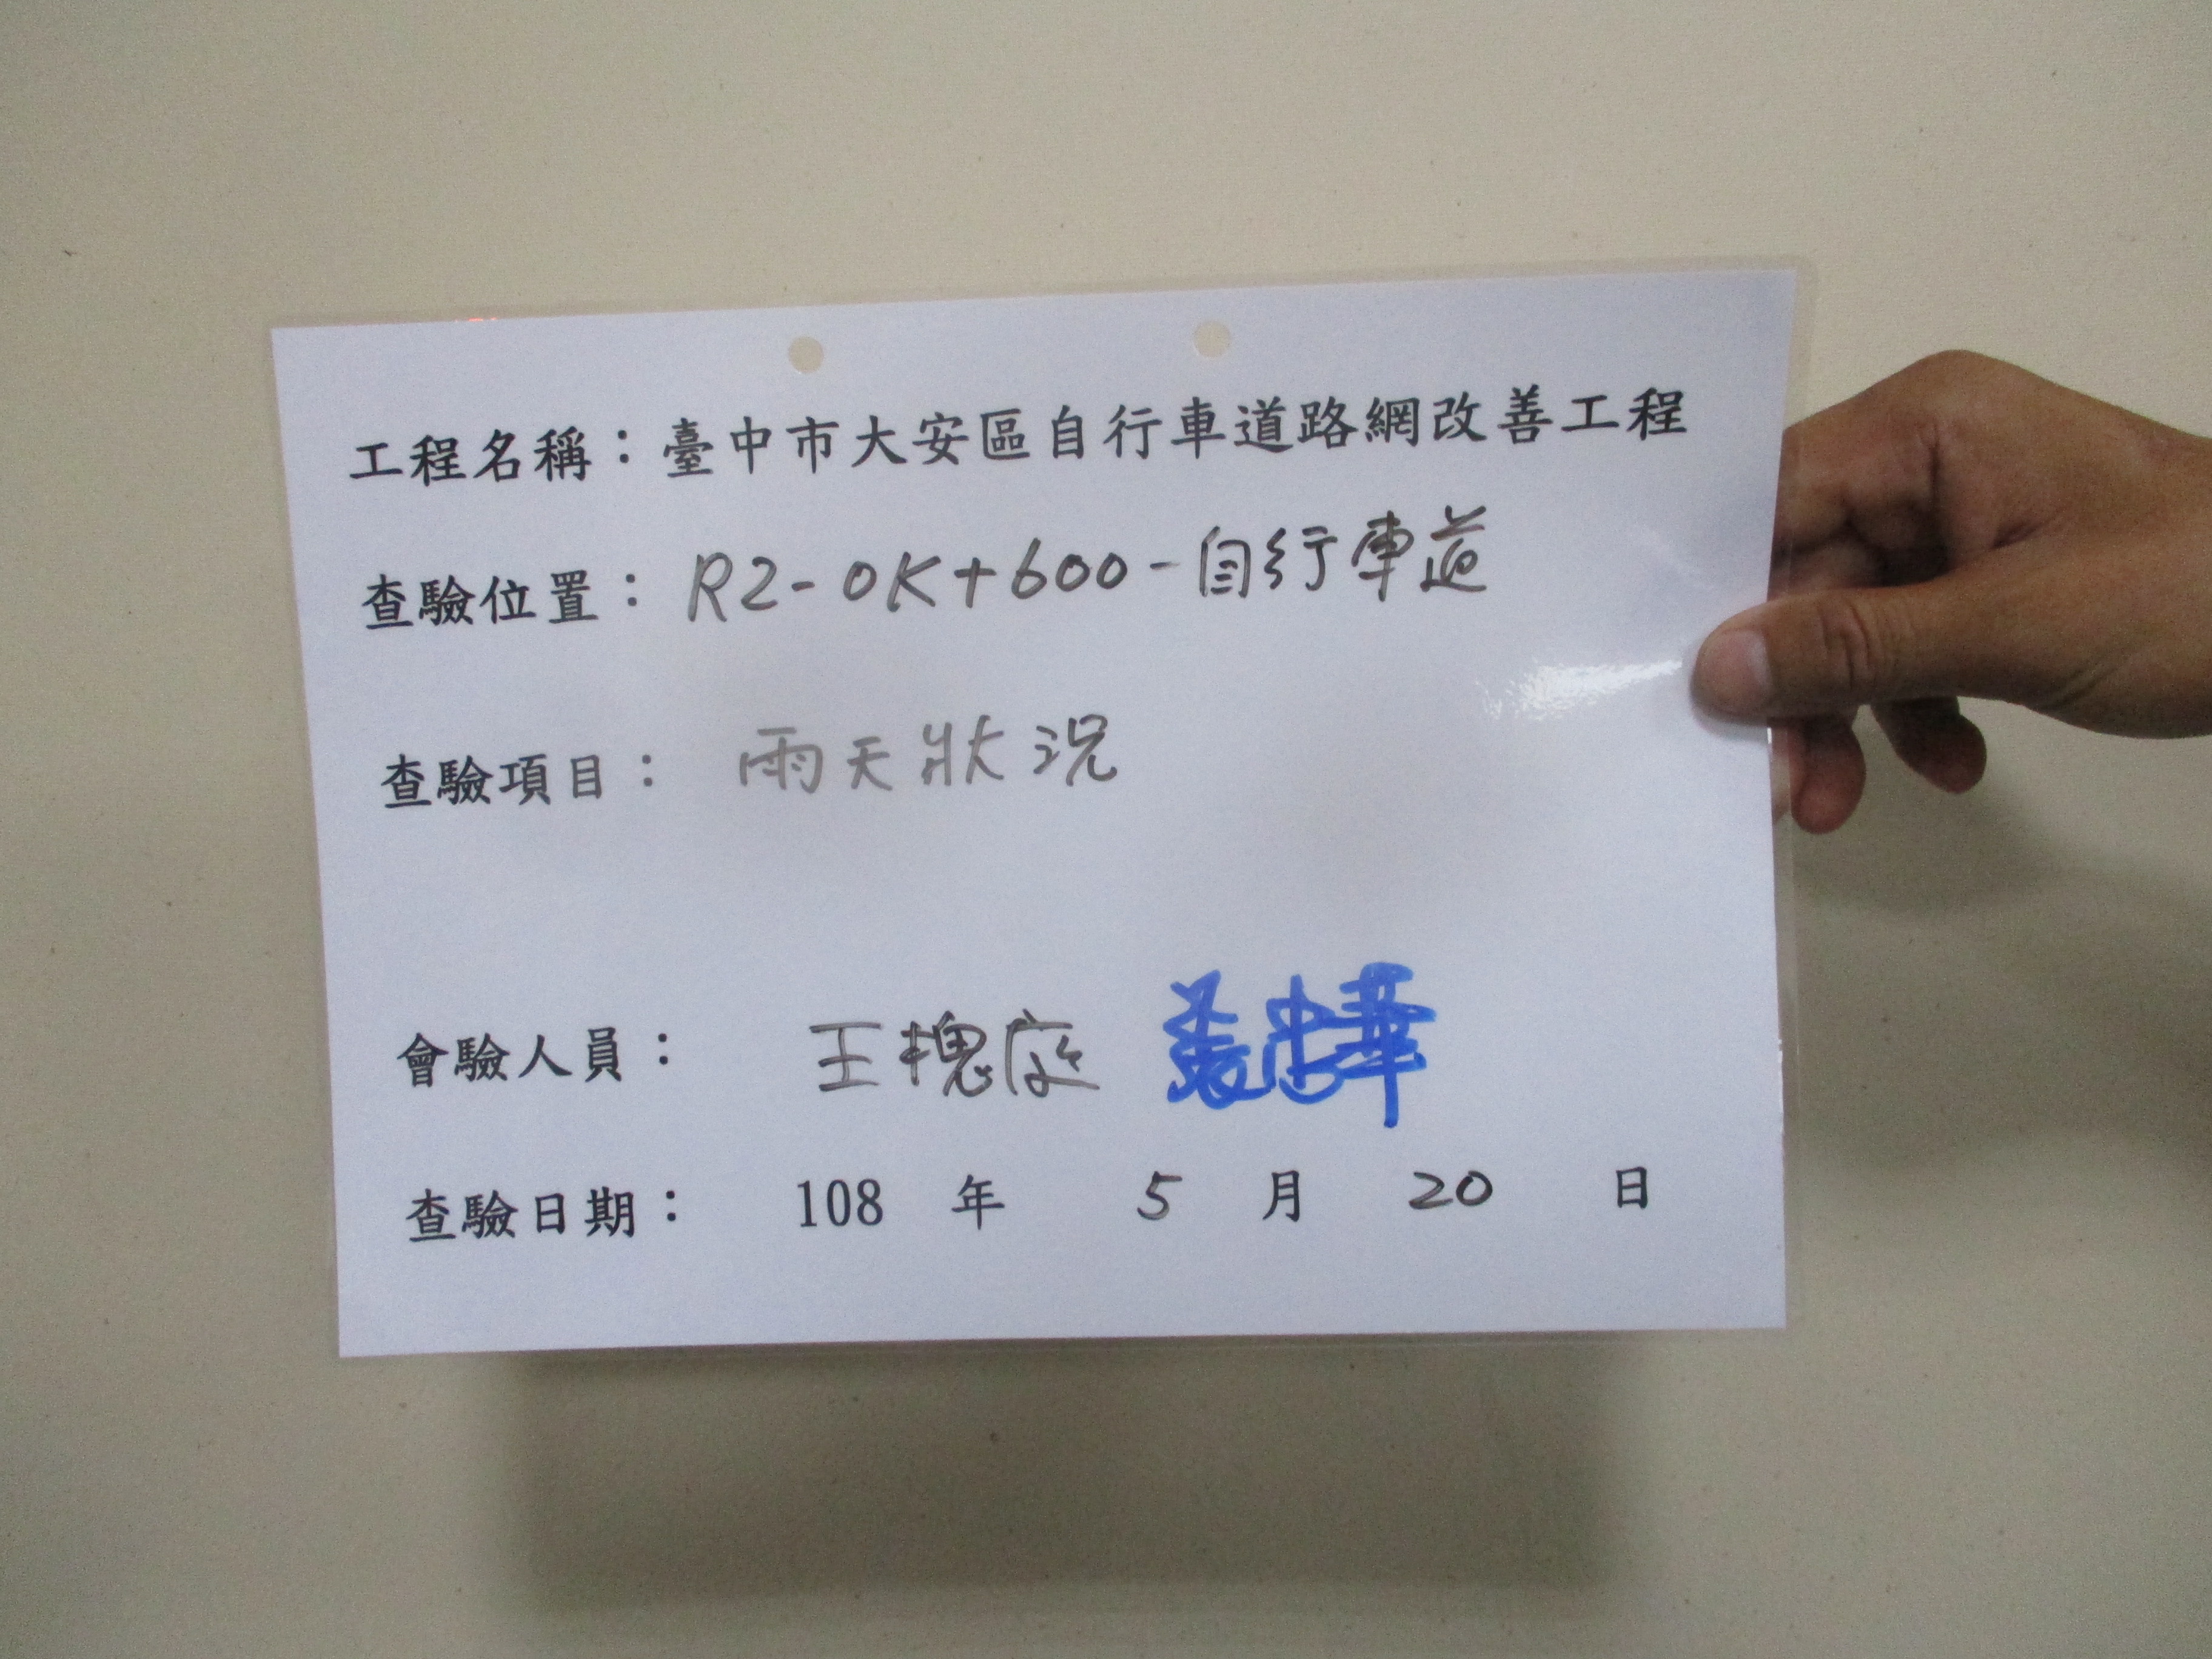 工程名稱：臺中市大安區自行車道路網改善工程
查驗位置：R2-0K+600-自行車道
查驗項目：雨天狀況
會驗人員：王槐庭 張忠華
查驗日期：108 年 5 月 20 日